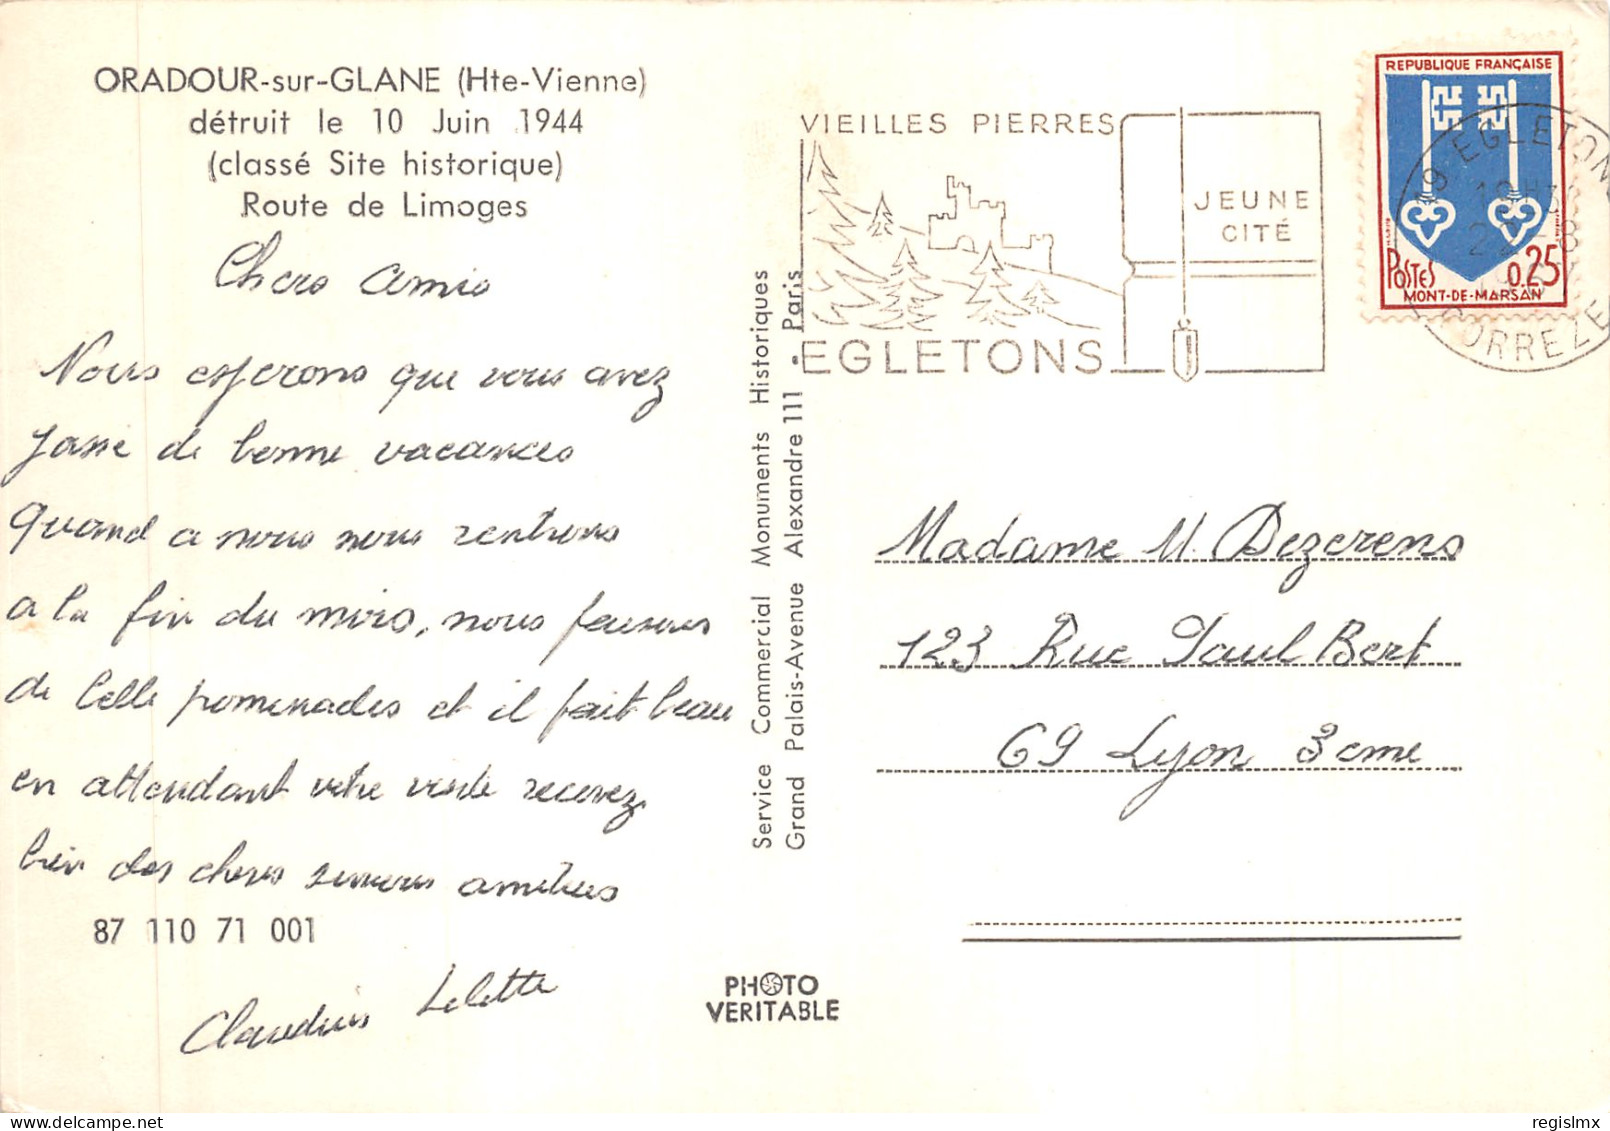 ORADOUR-sur-GLANE (Hte-Vienne)
détruit le 10 Juin 1944
(classé Site historique)
Route de Limoges
Chers amis
Nous esperons que vous avez
passé de bonne vacances
quand a nous nous rentrons
a la fin du mois, nous faisons
de belle promenades et il fait beau
en attendant votre visite recevez
bien des choses amitiés
87 110 71 001
Claudius Lolette
Service Commercial Monuments Historiques
Grand Palais-Avenue Alexandre 111 - Paris
PHOTO
VERITABLE
VIEILLES PIERRES
JEUNE
CITÉ
EGLETONS
REPUBLIQUE FRANÇAISE
POSTES 0.25
MONT-DE-MARSAN
19 EGLETONS
22-8
CORREZE
Madame M. Dezerens
123 Rue Paul Bert
69 Lyon 3eme
regislmx